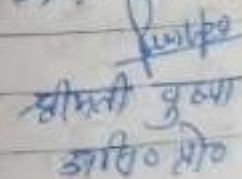 श्रीमती पुष्पा
असि० प्रो०